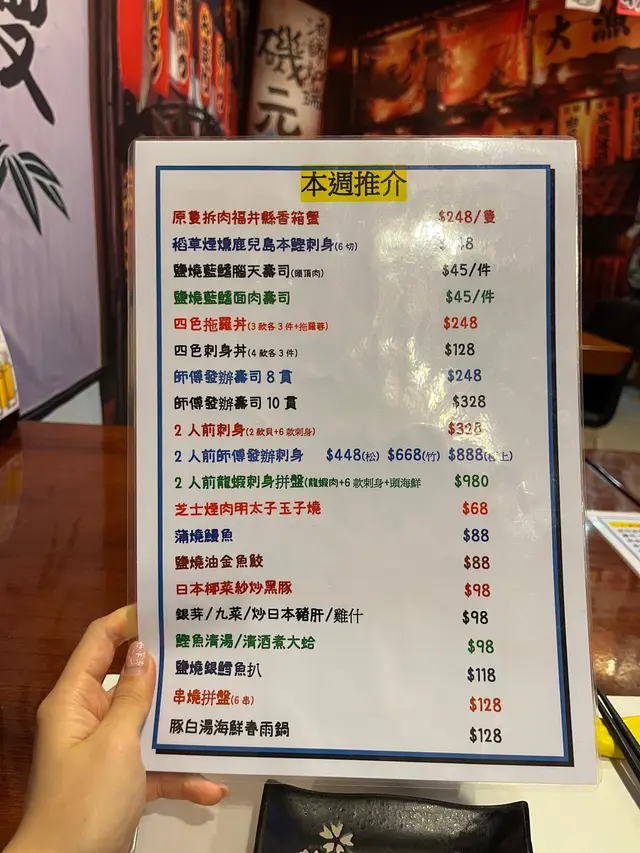 磯
元
大漁
本週推介
原隻拆肉福井縣香箱蟹 $248/隻
稻草煙燻鹿兒島本鰹刺身(6 切)
鹽燒藍鰭腦天壽司(頭頂肉) $45/件
鹽燒藍鰭面肉壽司 $45/件
四色拖羅丼(3 款各 3 件+拖羅蓉) $248
四色刺身丼(4 款各 3 件) $128
師傅發辦壽司 8 貫 $248
師傅發辦壽司 10 貫 $328
2 人前刺身(2 款貝+6 款刺身) $328
2 人前師傅發辦刺身 $448(松) $668(竹) $888(極上)
2 人前龍蝦刺身拼盤(龍蝦肉+6 款刺身+頭海鮮 $980
芝士煙肉明太子玉子燒 $68
蒲燒鰻魚 $88
鹽燒油金魚鮫 $88
日本椰菜紗炒黑豚 $98
銀芽/九菜/炒日本豬肝/雞什 $98
鰹魚濱湯/濱酒煮大蛤 $98
鹽燒銀鱈魚扒 $118
串燒拼盤(6 串) $128
豚白湯海鮮春雨鍋 $128